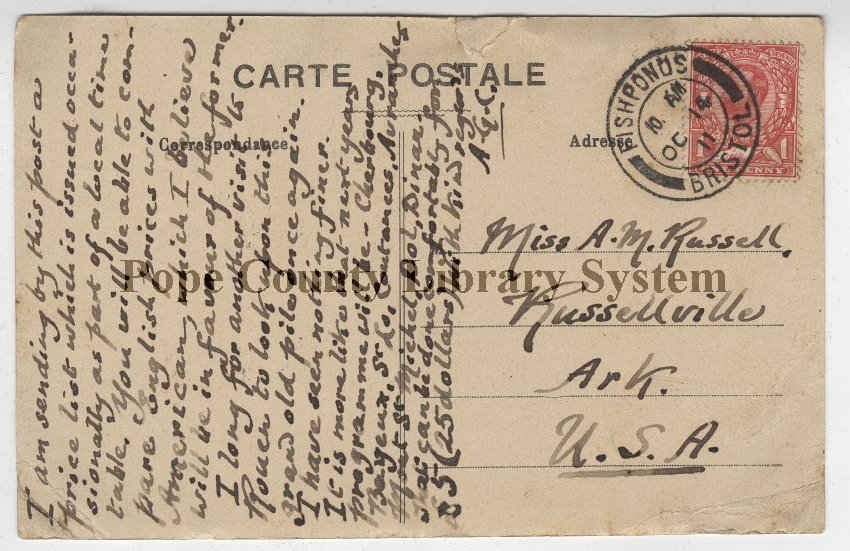 CARTE POSTALE
Correspondance
Adresse
FISHPONDS
10. AM
OC 14
11
BRISTOL
PENNY 1
I am sending by this post a
price list which is issued occa-
sionally as part of a local time
table. You will be able to com-
pare English prices with
American, which I believe
will be in favour of the former.
I long for another visit to
Rouen to look upon this
grand old pile once again.
I have seen nothing finer.
It is more like that next years
programme will be - Cherbourg,
Bayeux, St Lo, Coutances, Avranches
Mont St Michel, Dol, Dinan.
That can be done comfortably for
£5 - (25 dollars) with kind regards
A.G.C.
Miss A. M. Russell,
Russellville
Ark.
U. S. A.
Pope County Library System